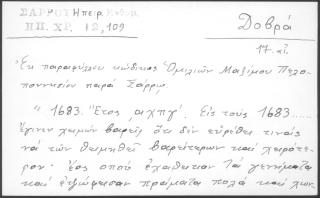 ΣΑΡΡΟΥ Ηπειρ.
ΗΠ. ΧΡ. 12, 109
Δοβρά
17 αἰ.
Ἐκ παραφύλλου κώδικος Ὁμιλιῶν Μαξίμου Πελο-
ποννησίου παρά Σάρρω.
"1683. Ἔτος ,αχπγ'. Εἰς τοὺς 1683......
ἔγινεν χειμών βαρείς ὅτι δέν εὑρέθει τινάς
νά τόν θυμηθεῖ βαρείτερων καί χειρότε-
ρον· ἕος ὁποῦ ἐχάθηκαν τά γενήματα
καί ἐψώφισαν πράματα πολά καί